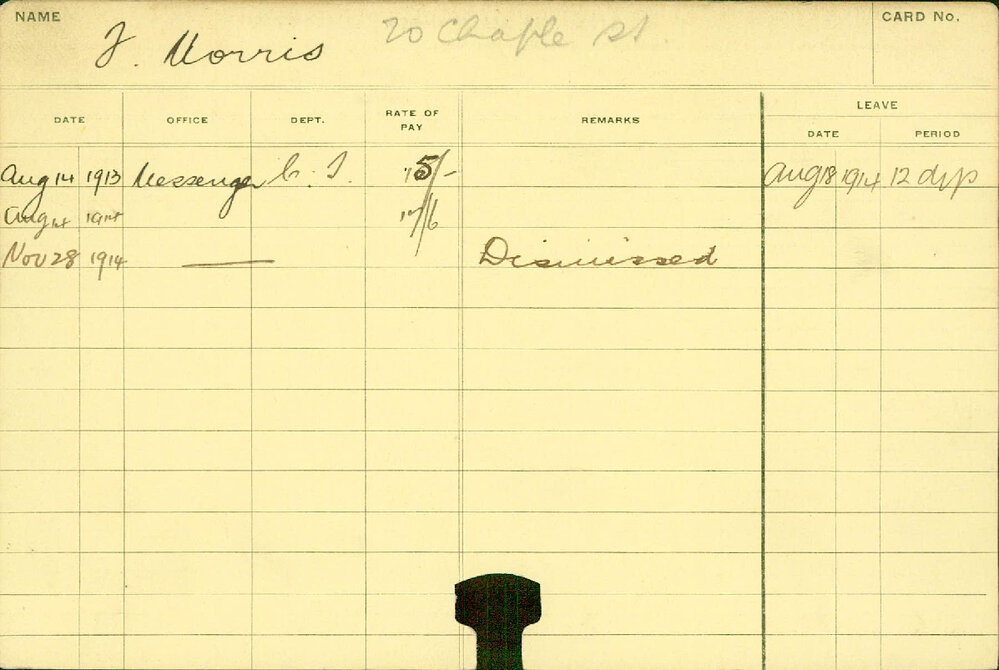 NAME J. Morris 20 Chaple St. CARD No.
DATE OFFICE DEPT. RATE OF PAY REMARKS LEAVE
DATE PERIOD
Aug 14 1913 Messenger 5/- Aug 18 1914 12 dys
Aug 14 1914 7/6
Nov 28 1914 — Dismissed